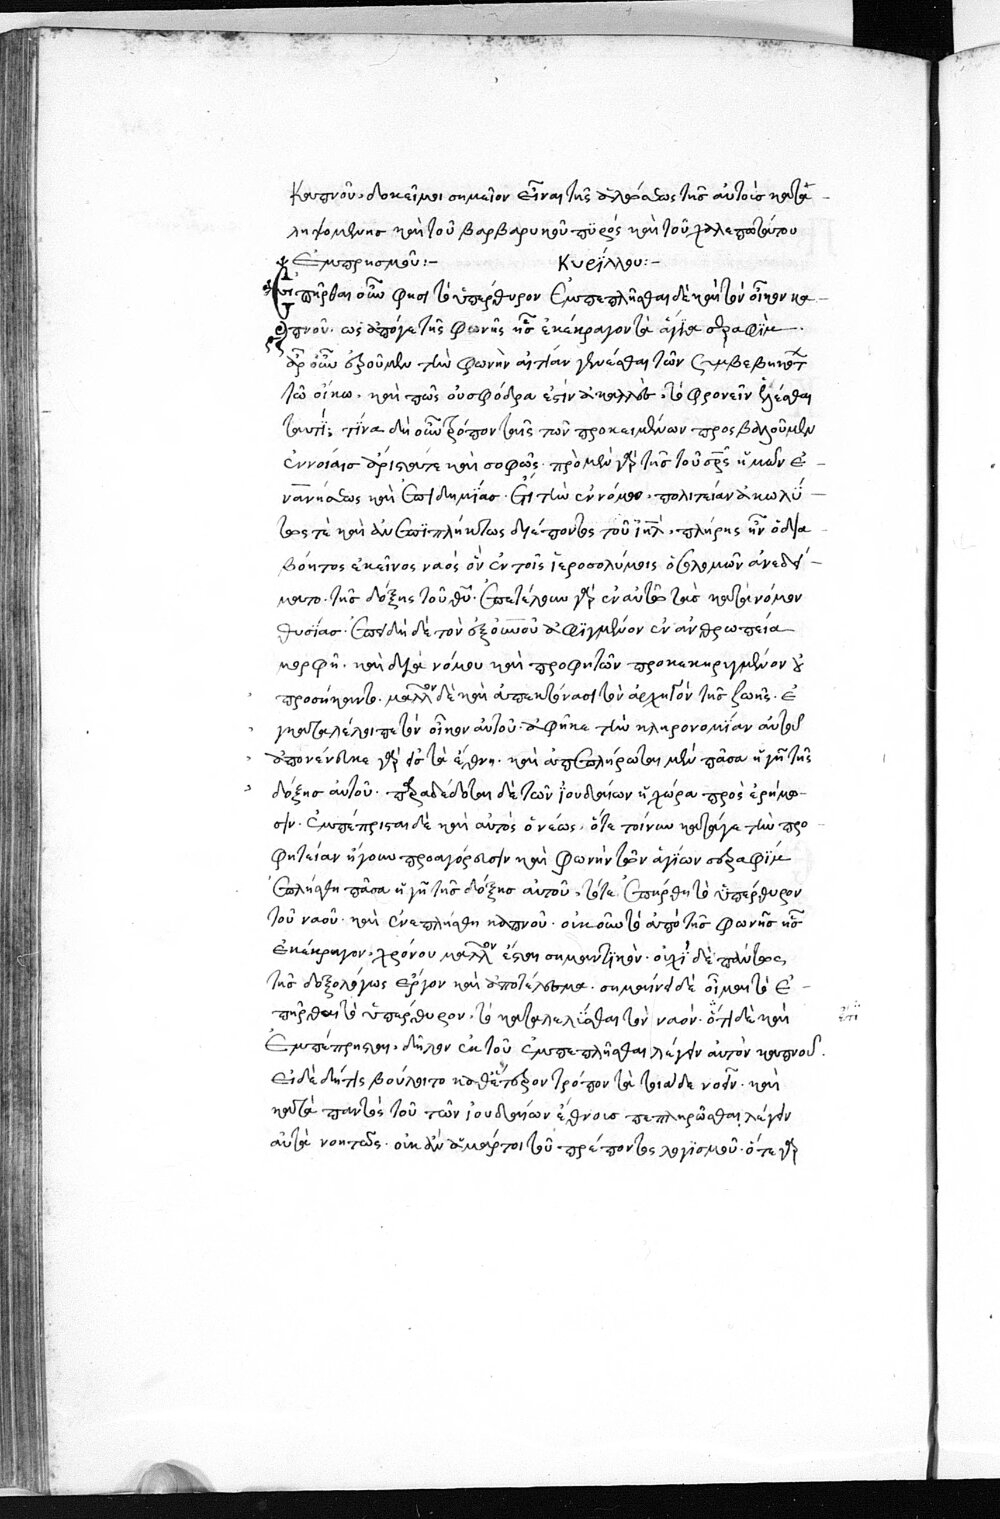 καπνοῦ, δοκεῖ μοι σημεῖον εἶναι τῆς ἀλώσεως τῆς αὐτοὺς κατα-
ληψομένης καὶ τοῦ βαρβαρικοῦ πυρὸς καὶ τοῦ χαλεπωτάτου
ἐμπρησμοῦ:- Κυρίλλου:-
ἐπῆρθαι οὖν φησι τὸ ὑπέρθυρον ἐμπεπλῆσθαι δὲ καὶ τὸν οἶκον κα-
πνοῦ. ὡς ἀπό γε τῆς φωνῆς ἧς ἐκέκραγον τὰ ἅγια σεραφὶμ.
ἆρ' οὖν ἐροῦμεν τὴν φωνὴν αἰτίαν γενέσθαι τῶν συμβεβηκότ
τῷ οἴκῳ. καὶ πῶς οὐ σφόδρα ἐστὶν ἀκαλλὲς, τὸ φρονεῖν ἑλέσθαι
ταυτί; τίνα δὴ οὖν τρόπον ταῖς τῶν προκειμένων προσβαλοῦμεν
ἐννοίαις ἄριστά τε καὶ σοφῶς. πρὸ μὲν γὰρ τῆς τοῦ σρς ἡμῶν ἐ-
νανπήσεως καὶ ἐπιδημίας. ἔτι τὴν ἐννόμον, πολιτείαν ἀκωλύ-
τως τὲ καὶ ἀνεπιπλήκτως διέποντος τοῦ ιηλ, πλήρης ἦν ὁ δια-
βόητος ἐκεῖνος ναὸς ὃν ἐν τοῖς ἱεροσολύμοις ὁ σολομῶν ἀνεδεί-
ματο. τῆς δόξης τοῦ θυ. ἐπετέλουν γὰρ ἐν αὐτῷ τὰς κατὰ νόμον
θυσίας. ἐπειδὴ δὲ τὸν ἐξ οὐνοῦ ἀφιγμένον ἐν ἀνθρωπεία
μορφῇ. καὶ διὰ νόμου καὶ προφητῶν προκεκηρυγμένον οὐ
προσήκαντο. μᾶλλον δὲ καὶ ἀπεκτόνασι τὸν ἀρχηγὸν τῆς ζωῆς. ἐ
γκαταλέλοιπε τὸν οἶκον αὐτοῦ. ἀφῆκε τὴν κληρονομίαν αὐτοῦ
ἀπονένευκε γὰρ εἰς τὰ ἔθνη. καὶ ἀπεπληρώται μὲν πᾶσα ἡ γῆ τῆς
δόξης αὐτοῦ. παραδέδοται δὲ τῶν ἰουδαίων ἡ χώρα πρὸς ἐρήμω-
σιν. ἐμπέπρισται δὲ καὶ αὐτὸς ὁ νέως, ὅτε τοίνυν κατά γε τὴν προ-
φητείαν ἤγουν προαγόρευσιν καὶ φωνὴν τῶν ἁγίων σεραφὶμ
ἐπλήσθη πᾶσα ἡ γῆ τῆς δόξης αὐτοῦ, τότε ἐπήρθη τὸ ὑπέρθυρον
τοῦ ναοῦ. καὶ ἐνεπλήσθη καπνοῦ. οὐκοῦν τὸ ἀπὸ τῆς φωνῆς ἧς
ἐκέκραγον, χρόνου μᾶλλον ἐστι σημαντικὸν. οὐχὶ δὲ πάντως
τῆς δοξολογίας ἔργον καὶ ἀποτέλεσμα. σημαίνει δὲ οἶμαι τὸ ἐ-
πῆρθαι τὸ ὑπέρθυρον, τὸ καταλελῦσθαι τὸν ναόν. ὅτι δὲ καὶ
ἐμπέπρησται, δῆλον ἐκ τοῦ ἐμπεπλῆσθαι λέγειν αὐτὸν καπνοῦ.
εἰ δὲ δή τις βούλοιτο καθ' ἕτερον τρόπον τὰ τοιάδε νοεῖν. καὶ
κατὰ παντὸς τοῦ τῶν ἰουδαίων ἔθνους πεπληρῶσθαι λέγειν
αὐτὰ νοητῶς. οὐκ ἂν ἁμάρτοι τοῦ πρέποντος λογισμοῦ. ὅτε γὰρ